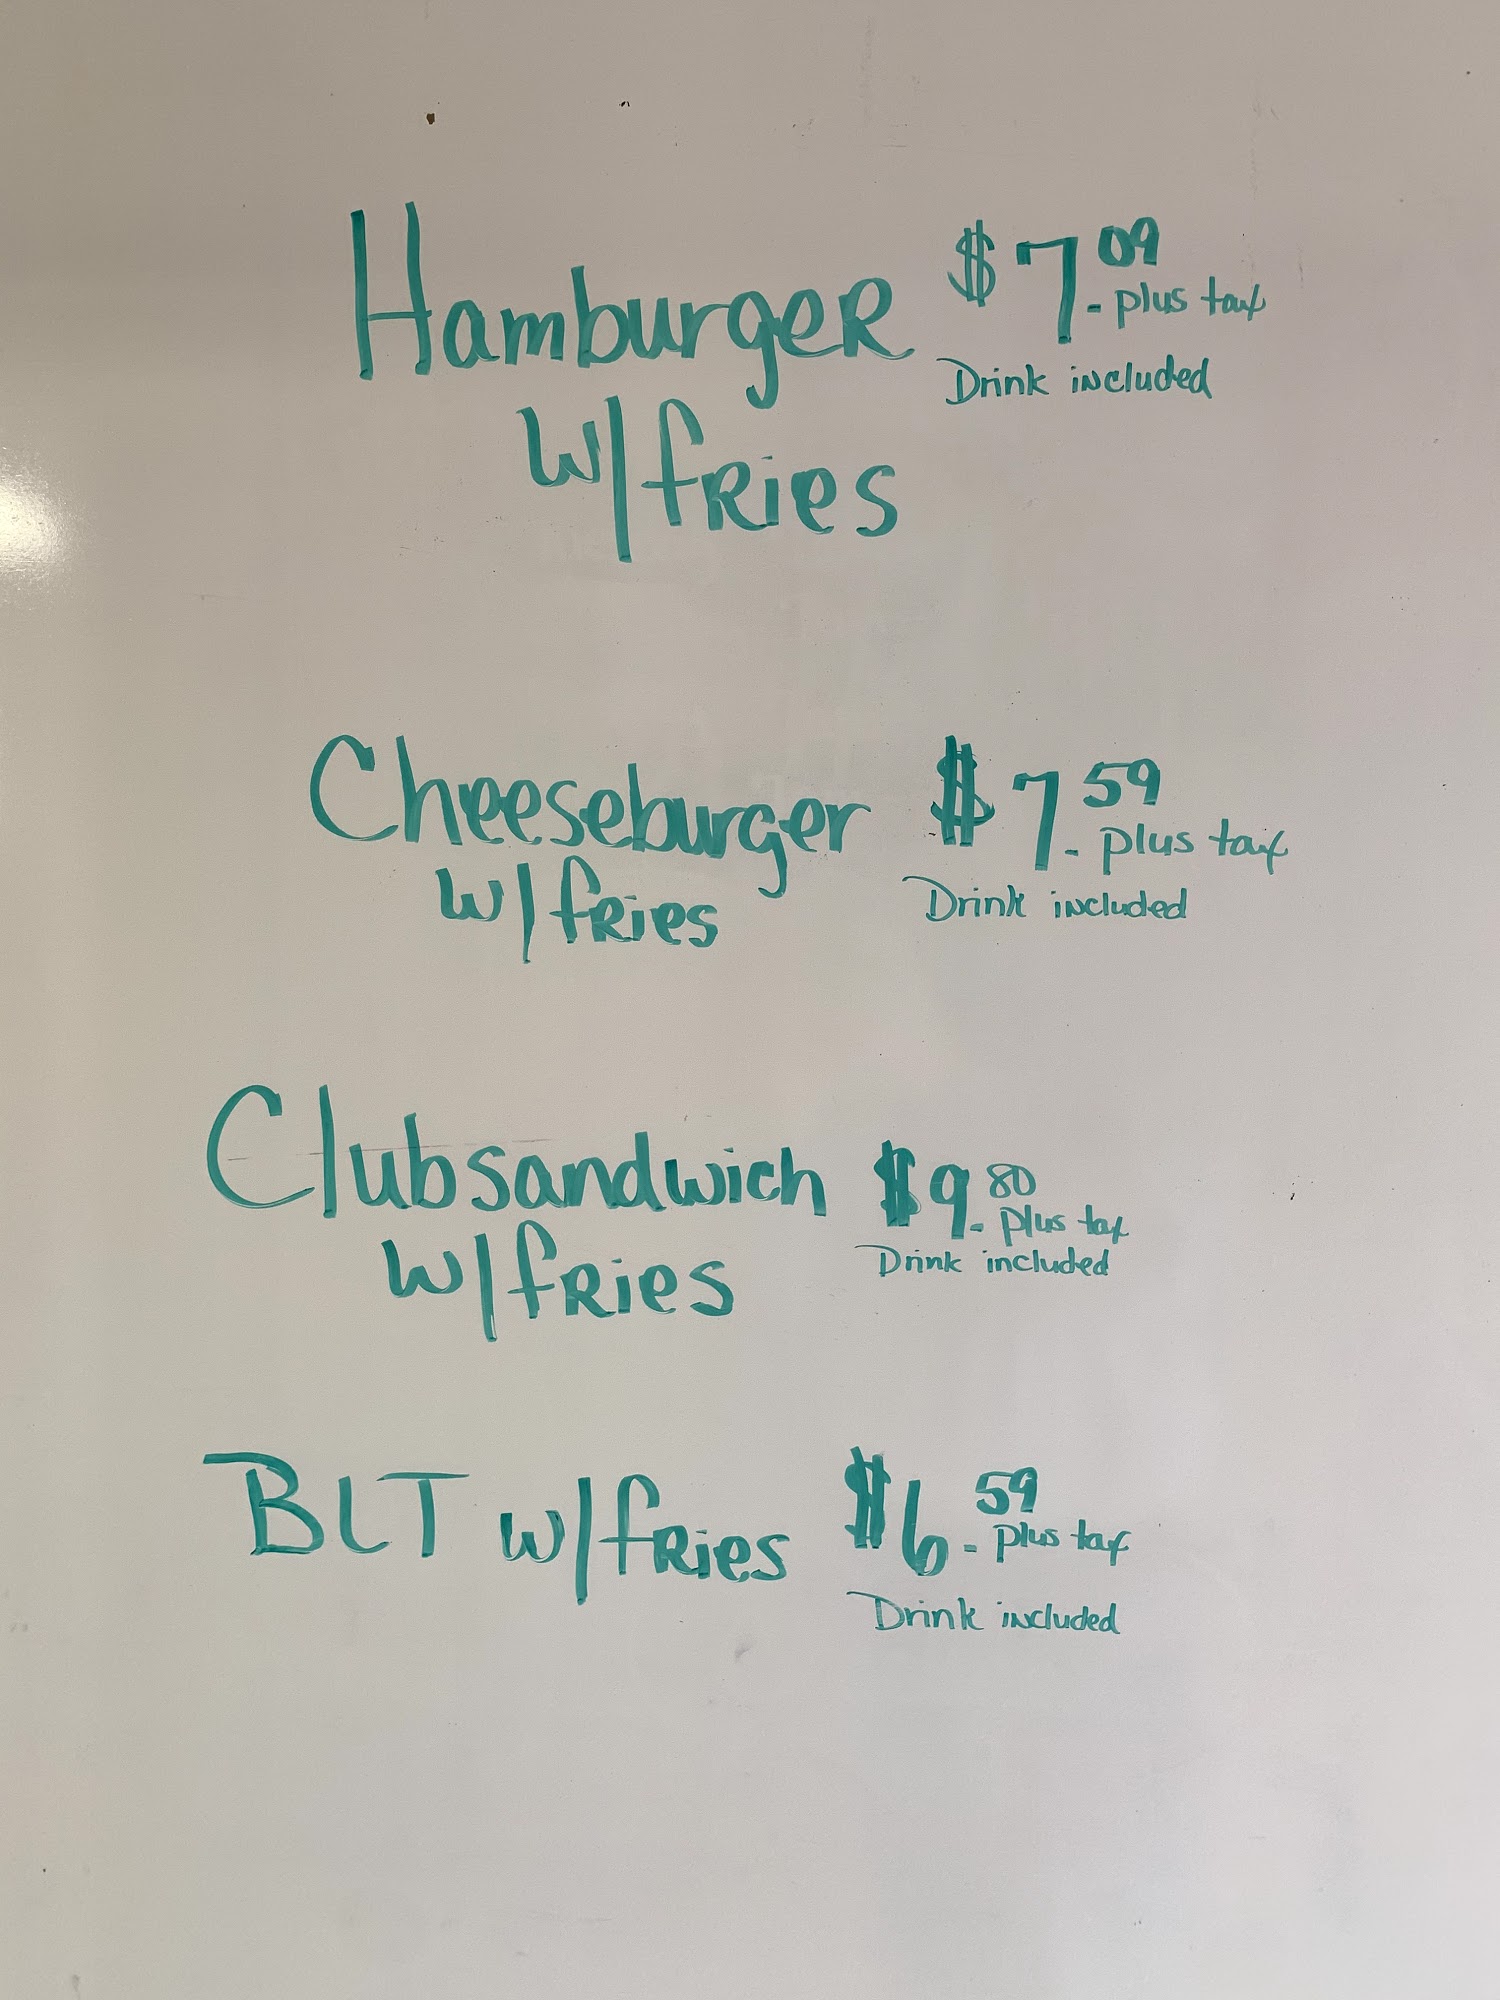 Hamburger $7.09 - plus tax
Drink included
w/fries
Cheeseburger $7.59 - plus tax
w/fries Drink included
Clubsandwich $9.80 - plus tax
Drink included
w/fries
BLT w/fries $6.59 - plus tax
Drink included